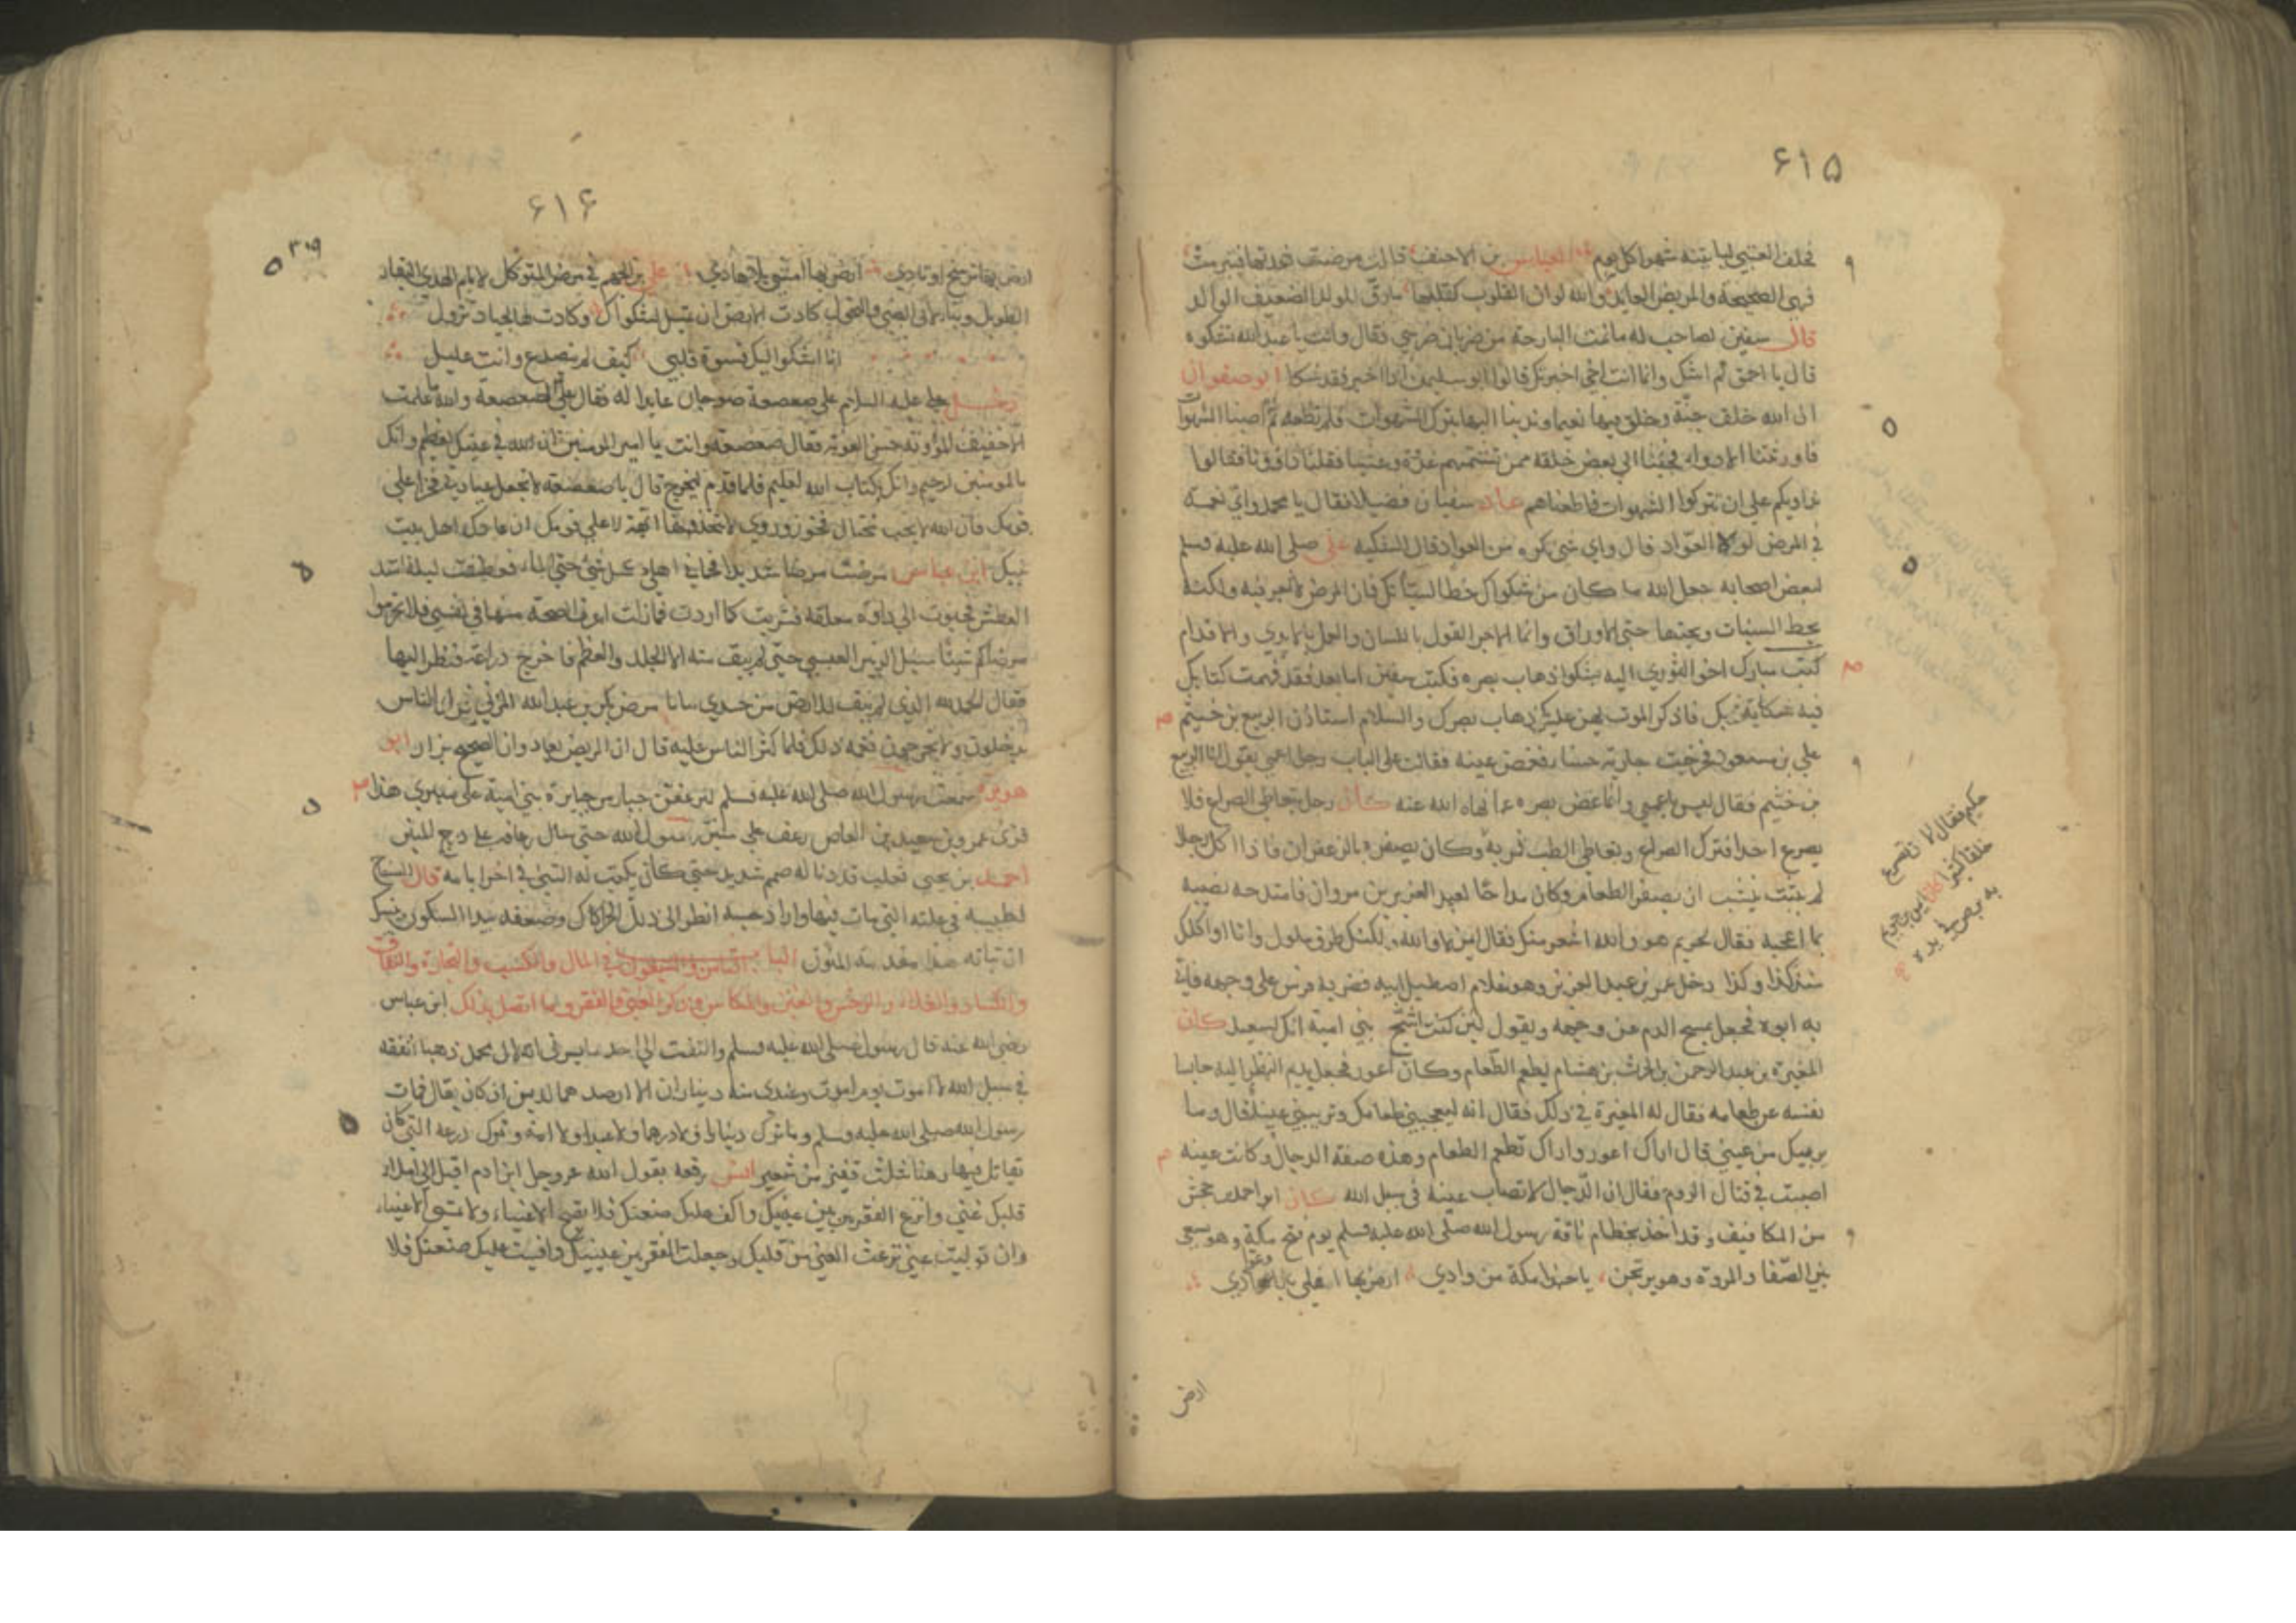 ۶۱۵
فحلف العتبي ليأتينه شهرا كل يوم العباس بن الاحنف قالت مرضت فعدتها فتبرمت
فهي الصحيحة والمريض العايد والله لو ان القلوب كقلبها مارق للولد الضعيف الوالد
قال سفين لصاحب له مانمت البارحة من ضربان ضرسي فقال وانت يا عبد الله تشكوه
قال يا احمق لم اشك وانما انت اخي اخبرتك قالوا ابو سليمن اذا اخبر فقد شكا ابو صفوان
ان الله خلق جنة وخلق فيها نعيما وندبنا اليها بترك الشهوات فلم نطعه ثم اصبنا الشهوات
فاورثتنا الادواء فجئنا الى بعض خلقه ممن
نداويكم على ان تتركوا الشهوات فاطعناهم عاد سفيان فضيلا فقال يا محمد واي نعمة
في المرض لولا العواد قال واي شي تكره من العواد قال الشكيه علي صلى الله عليه وسلم
لبعض اصحابه جعل الله ما كان من شكواك حطا لسيئاتك فان المرض لا اجر فيه ولكنه
يحط السيئات ويحتها حت الاوراق وانما الاجر القول باللسان والعمل بالايدي والاقدام
كتب مبارك اخو الثوري اليه يشكوا ذهاب بصره فكتب سفين اما بعد فقد فهمت كتابك
فيه شكاية ربك فاذكر الموت يهن عليك ذهاب بصرك والسلام استاذن الربيع بن خثيم
على بن مسعود فخرجت جارية حسناء فغمض عينه فقالت على الباب رجل اعمى يقول انا الربيع
بن خثيم فقال ليس باعمى وانما غض بصره عما نهاه الله عنه كان رجل يتعاطى الصراع فلا
يصرع احدا فترك الصراع وتعاطى الطب فمر به
حكيم فقال لا تصرع
خلقا كثيرا كان ايمن بن خريم
به برص في يده
وكان يصفره بالزعفران فاذا اكل رجلا
لم يثبت ان يصفر الطعام وكان مداحا لعبد العزيز بن مروان فامتدحه نصيب
بما اعجبه فقال لخريم هو والله اشعر منك فقال ايمن لا والله ولكنك طرف ملول وانا اواكلك
منذ كذا وكذا دخل عمر بن عبد العزيز وهو غلام اصطبل ابيه فضربه فرس على وجهه فاتي
به ابوه فجعل يمسح الدم عن وجهه ويقول لئن كنت اشج بني امية انك لسعيد كان
المغيرة بن عبد الرحمن بن الحرث بن هشام يطعم الطعام وكان اعور فجعل يديم النظر اليه حابسا
نفسه عن طعامه فقال له المغيرة في ذلك فقال انه ليعجبني طعامك وتريبني عينك قال وما
يريبك من عيني قال اراك اعور واراك تطعم الطعام وهذه صفة الدجال وكانت عينه
اصيبت في قتال الروم فقال ان الدجال لا تصاب عينه في سبيل الله كان ابو احمد بن جحش
من المكافيف وقد اخذ بخطام ناقة رسول الله صلى الله عليه وسلم يوم فتح مكة وهو يسعى
بين الصفا والمروة وهو يرتجز يا حبذا مكة من وادي ارض بها اهلي وعوادي
ارض
۶۱۶
۳۰۹
ارض بها ترسخ اوتادي ارض بها امشي بلا هادي علي بن الجهم في مرض المتوكل لامام الهدى البقاء
الطويل وبنا لا به الضنى والنحول كادت الارض ان تميل لشكواك وكادت لها الجبال تزول
انا اشكوا اليك قسوة قلبي كيف لم ينصدع وانت عليل
دخل علي عليه السلام على صعصعة صوحان عايدا له فقال علي لصعصعة والله ما علمت
الا خفيف المؤونة حسن المعونة فقال صعصعة وانت يا امير المومنين ان الله في عينك لعظيم وانك
بالمومنين لرحيم وانك بكتاب الله لعليم فلما قام ليخرج قال يا صعصعة لا تجعل عيادتي فخرا على
قومك فان الله لا يحب كل مختال فخور وروي لا تتخذها ابهة لا على قومك ان عادك اهل بيت
نبيك ابن عباس مرضت مرضا شديدا فحماني اهلي كل شي حتى الماء فعطشت ليلة اشتد
العطش فحبوت الى داوة معلقة فشربت كما اردت فما زلت اعرف الصحة منها في نفسي فلا تحرموا
مرضاكم شيئا سئل الزبير العبسي حتى لم يبق منه الا الجلد والعظم فاخرج ذراعه فنظر اليها
فقال الحمد لله الذي لم يبق للارض من جسدي مرض بكر بن عبد الله المزني فترك الناس
يدخلون ولا يخرجون فغمه ذلك فلما كثر الناس عليه قال ان المريض يعاد وان الصحيح يزار ابو
هريرة سمعت رسول الله صلى الله عليه وسلم ليرعفن جبار من جبابرة بني امية على منبري هذا
فرئ عمرو بن سعيد بن العاص رعف على منبر رسول الله حتى سال رعافه على درج المنبر
احمد بن يحيى ثعلب قد دنا له صمم شديد حتى كان يكتب له الشي في اخر ايامه قال
لطبيبه في علته التي مات فيها واراد جسه انظر الى ذل الحراك وضعفه
الباب الناس في المال والكسب والتجارة والنفاق
والكساد والغلاء والرخص والغبن والمكاس وذكر الغنى والفقر وما اتصل بذلك ابن عباس
رضي الله عنه قال رسول الله صلى الله عليه وسلم والتفت الى احد ما يسرني انه لال محمد ذهبا انفقه
في سبيل الله لا اموت يوم اموت وعندي منه ديناران الا ارصدهما لدين ان كان فقال فمات
رسول الله صلى الله عليه وسلم وما ترك دينارا ولا درهما ولا عبدا ولا امة وترك درعه التي كان
يقاتل فيها رهنا بثلث قفيز من شعير انس رفعه يقول الله عز وجل ابن ادم اقبل الي املا
قلبك غنى وانزع الفقر من بين عينيك واكف عليك ضيعتك فلا تصبح الا غنيا ولا تمسي الا غنيا
وان توليت عني نزعت الغنى من قلبك وجعلت الفقر بين عينيك وافشيت عليك ضيعتك فلا